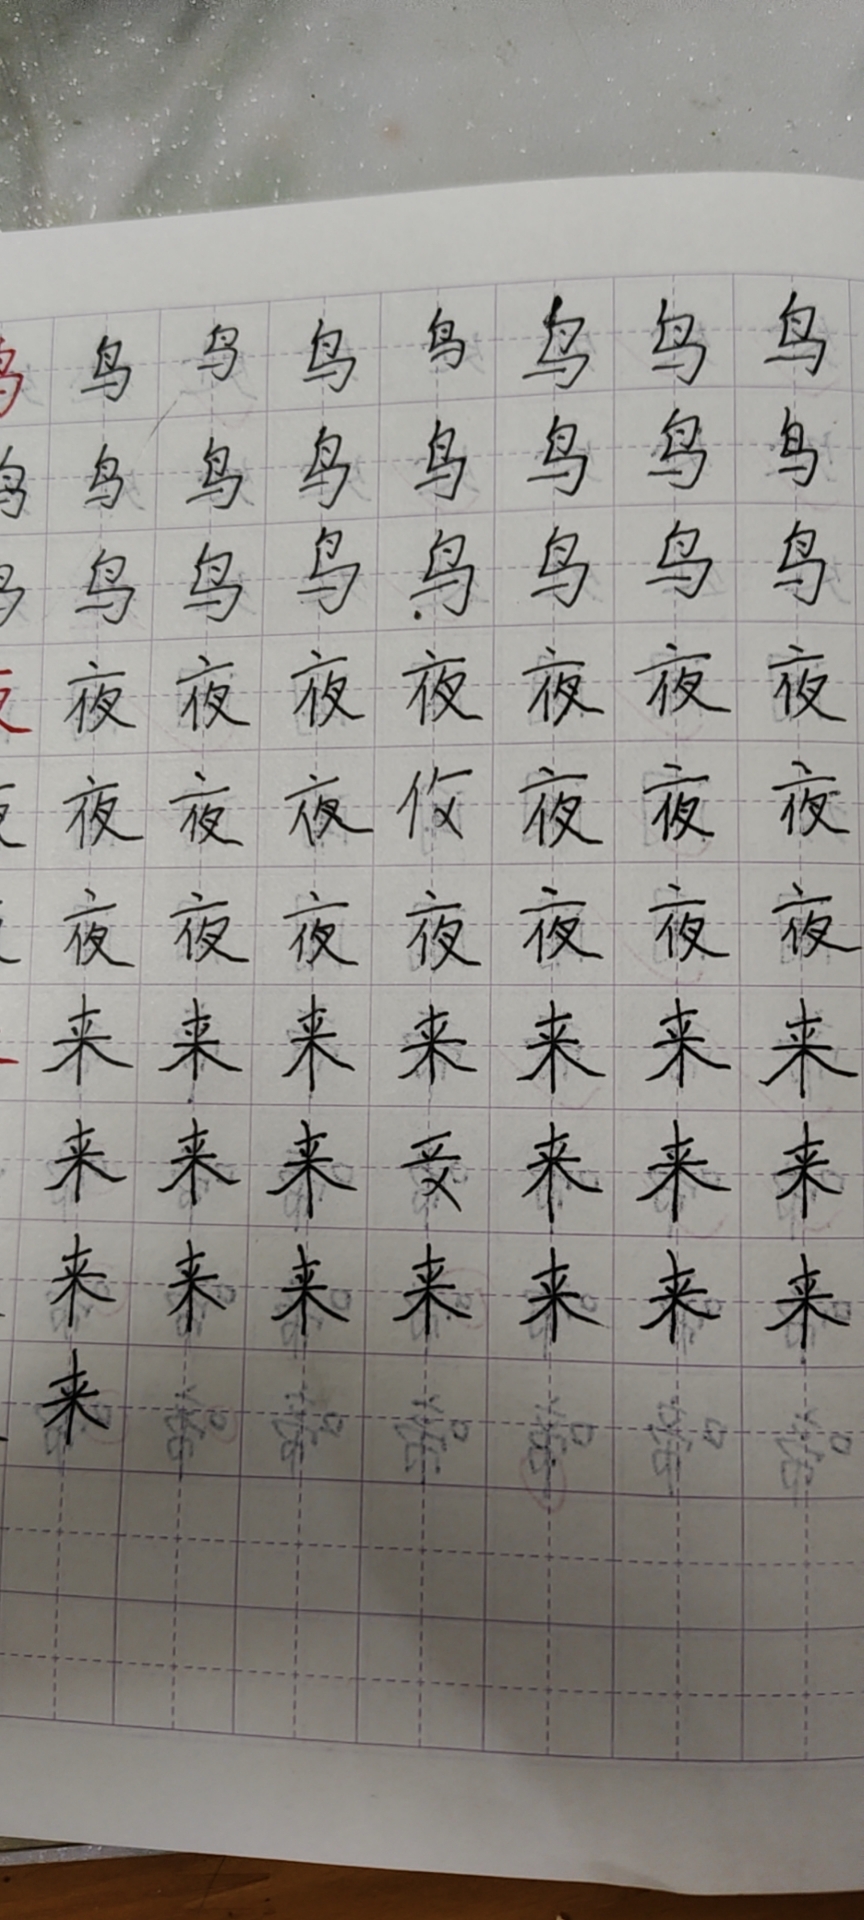 鸟 鸟 鸟 鸟 鸟 鸟 鸟 鸟
鸟 鸟 鸟 鸟 鸟 鸟 鸟 鸟
鸟 鸟 鸟 鸟 鸟 鸟 鸟 鸟
夜 夜 夜 夜 夜 夜 夜 夜
夜 夜 夜 夜 夜 夜 夜
夜 夜 夜 夜 夜 夜 夜 夜
来 来 来 来 来 来 来
来 来 来 来 来 来
来 来 来 来 来 来 来
来